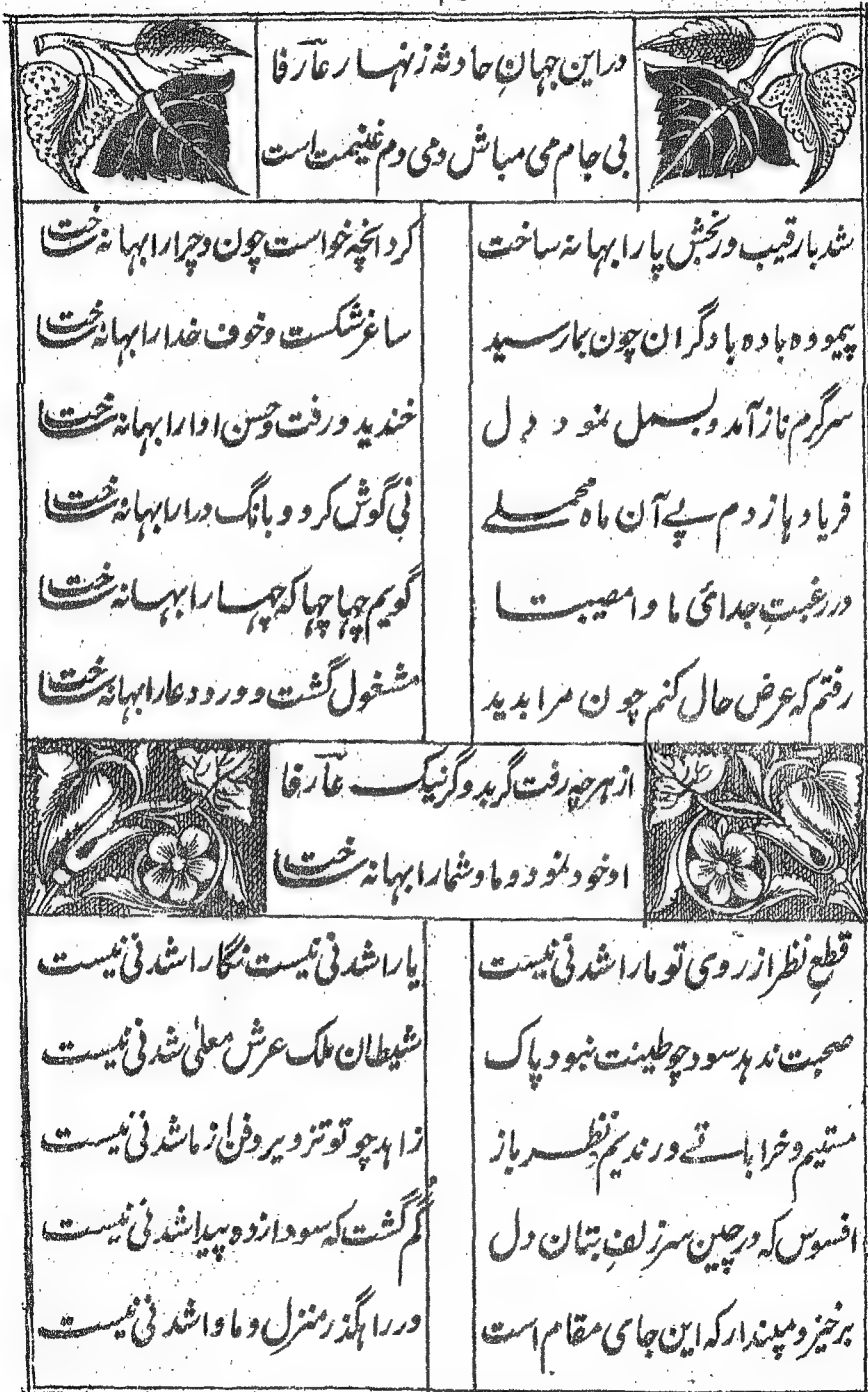 در این جهانِ حادثه زنهار عارفا
بی جام می مباش دمی دم غنیمت است
شد بارقیب و رنجش پا را بهانه ساخت کرد انچه خواست چون و چرا را بهانه ساخت
پیموده باده با دگران چون بمارسید ساغر شکست و خوف خدا را بهانه ساخت
سرگرم ناز آمد و بسمل نمود دل خندید و رفت و حسن ادا را بهانه ساخت
فریاد ها زدم پے آن ماه محملے نی گوش کرد و بانگ درا را بهانه ساخت
در رغبتِ جدائی ما وا مصیبتا گویم چها چها که چها را بهانه ساخت
رفتم که عرض حال کنم چون مرا بدید مشغول گشت و ورد دعا را بهانه ساخت
از هر چه رفت گر بد و گر نیک عارفا
او خود نمود و ما و شما را بهانه ساخت
قطعِ نظر از روی تو ما را شدنی نیست یارا شدنی نیست نگارا شدنی نیست
صحبت ندهد سود چو طینت نبود پاک شیطان ملک عرش معلیٰ شدنی نیست
مستیم و خراباتے و رندیم نظر باز زاهد چو تو تزویر و فن از ما شدنی نیست
افسوس که در چین سر زلفِ بتان دل گُم گشت که سودا زده پیدا شدنی نیست
بر خیز و مپندار که این جای مقام است در راهگذر منزل و ماوا شدنی نیست